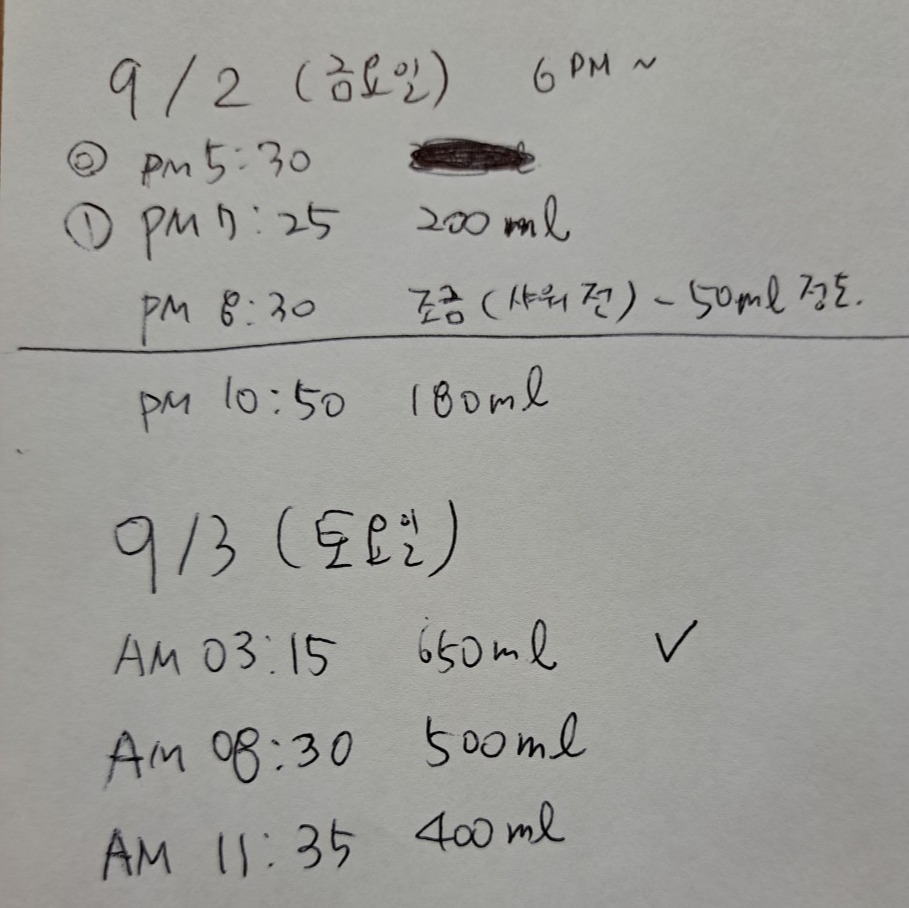 9/2 (금요일) 6 PM ~
⓪ PM 5:30
① PM 7:25 200ml
PM 8:30 조금 (샤워 전) - 50ml 정도.
PM 10:50 180ml
9/3 (토요일)
AM 03:15 650ml ✓
AM 08:30 500ml
AM 11:35 400ml